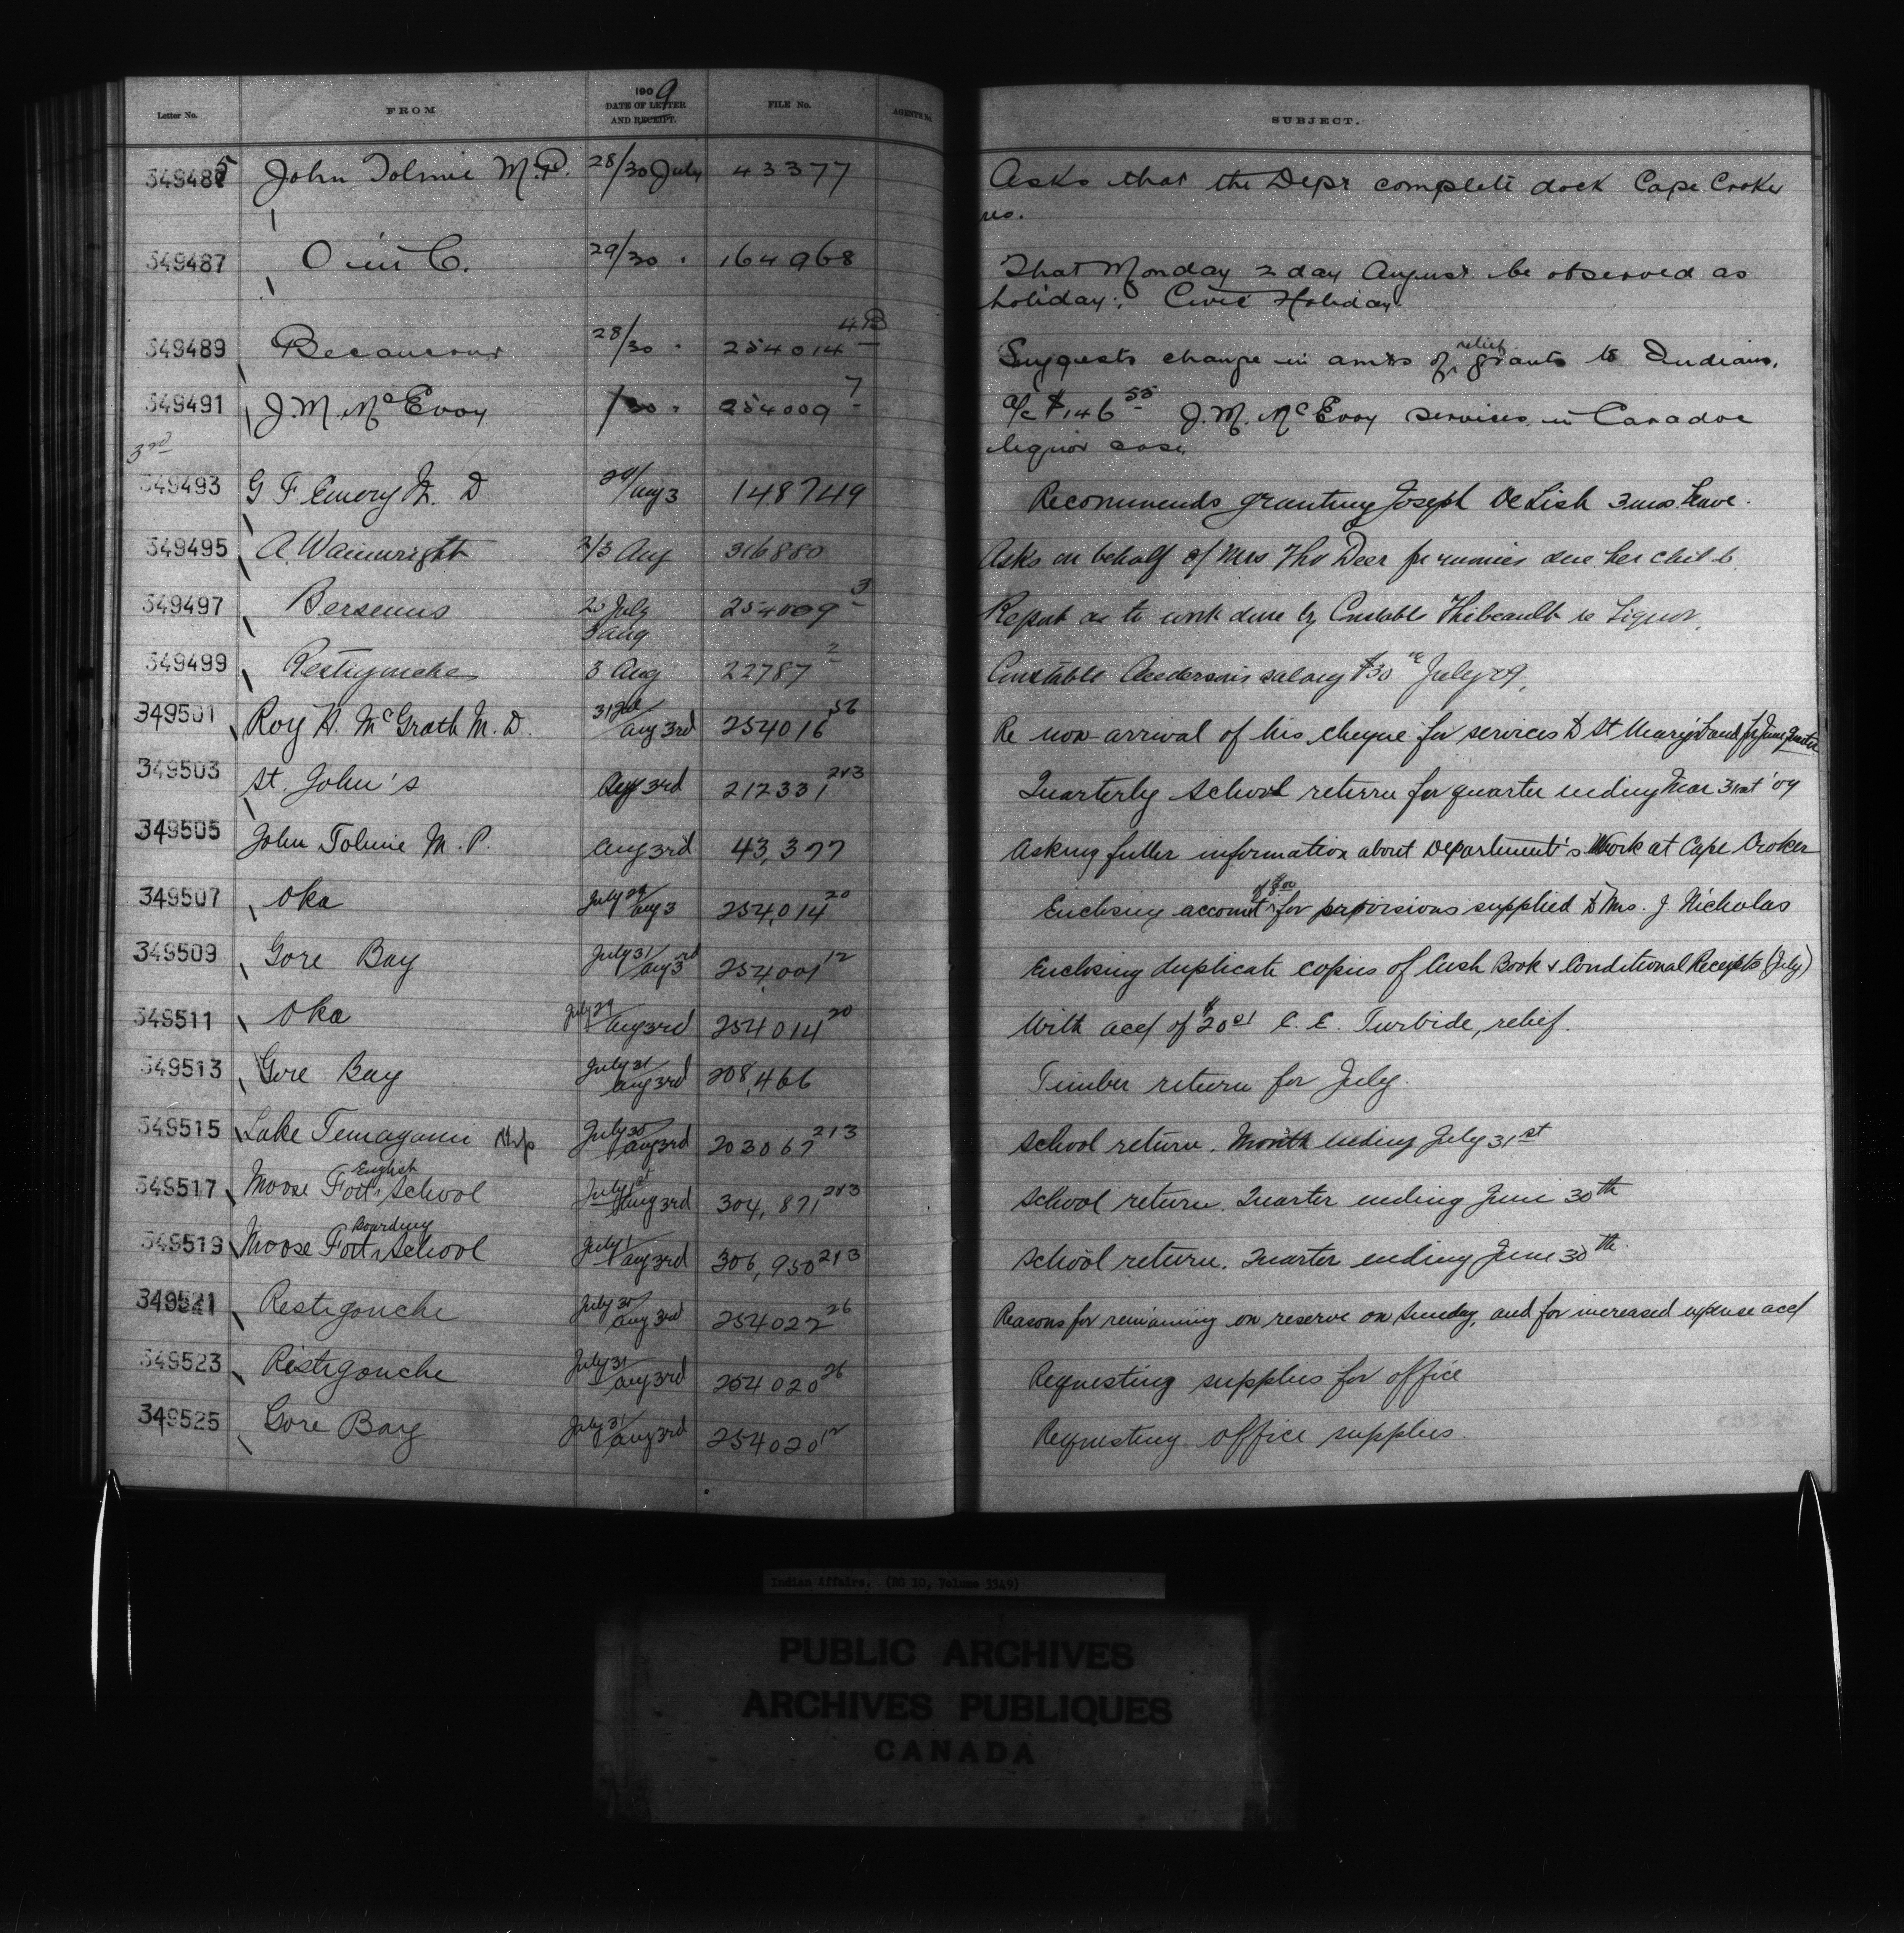 Letter No. FROM 1909 DATE OF LETTER AND RECEIPT. FILE No. AGENTS No. SUBJECT.
349485 John Tolmie M.P. 28/30 July 43377 Asks that the Dept complete dock Cape Croker
res.
349487 O in C. 29/30 " 164968 That Monday 2 day August be observed as
holiday; Civic Holiday.
349489 Becancour 28/30 " 254014 4B Suggests change in amts of relief grants to Indians.
349491 J. M. McEvoy /30 " 254009 7 a/c $146 55 J. M. McEvoy services in Caradoc
liquor case.
3rd
349493 G F Emory M. D Aug 3 148749 Recommends granting Joseph DeLish 3 mos. leave.
349495 A. Wainwright 2/3 Aug 316880 Asks on behalf of Mrs Tho Deer for monies due her child.
349497 Bersemis July 3 Aug 254009 3 Report as to work done by Constable Thibeault re Liquor.
349499 Restigouche 3 Aug 22787 2 Constable salary $30 July 09,
349501 Roy H. McGrath M. D. 31 Jul/Aug 3rd 254016 56 Re non-arrival of his cheque for services to St Mary's Band for June Quarter
349503 St. John's Aug 3rd 212331 213 Quarterly School return for quarter ending Mar 31st '09
349505 John Tolmie M. P. Aug 3rd 43,377 Asking fuller information about Department's Work at Cape Croker
349507 Oka July 29/Aug 3 254,014 20 Enclosing account of for provisions supplied to Mrs. J. Nicholas
349509 Gore Bay July 31/Aug 3rd 254,001 12 Enclosing duplicate copies of Cash Book & Conditional Receipts (July)
349511 Oka July 29/Aug 3rd 254014 20 With acct of $20 01 C. E. Turbide, relief.
349513 Gore Bay July 31/Aug 3rd 208,466 Timber return for July.
349515 Lake Temagami July 30/Aug 3rd 203067 213 School return. Month ending July 31st
349517 Moose Fort English School July 1st/Aug 3rd 304,871 213 School return. Quarter ending June 30th
349519 Moose Fort Boarding School July 1/Aug 3rd 306,950 213 School return. Quarter ending June 30th.
349521 Restigouche July 30/Aug 3rd 254022 26 Reasons for remaining on reserve on Sunday, and for increased expense acct
349523 Ristigouche July 31/Aug 3rd 254020 26 Requesting supplies for office
349525 Gore Bay July 31/Aug 3rd 254020 12 Requesting office supplies.
Indian Affairs. (RG 10, Volume 3349)
PUBLIC ARCHIVES
ARCHIVES PUBLIQUES
CANADA